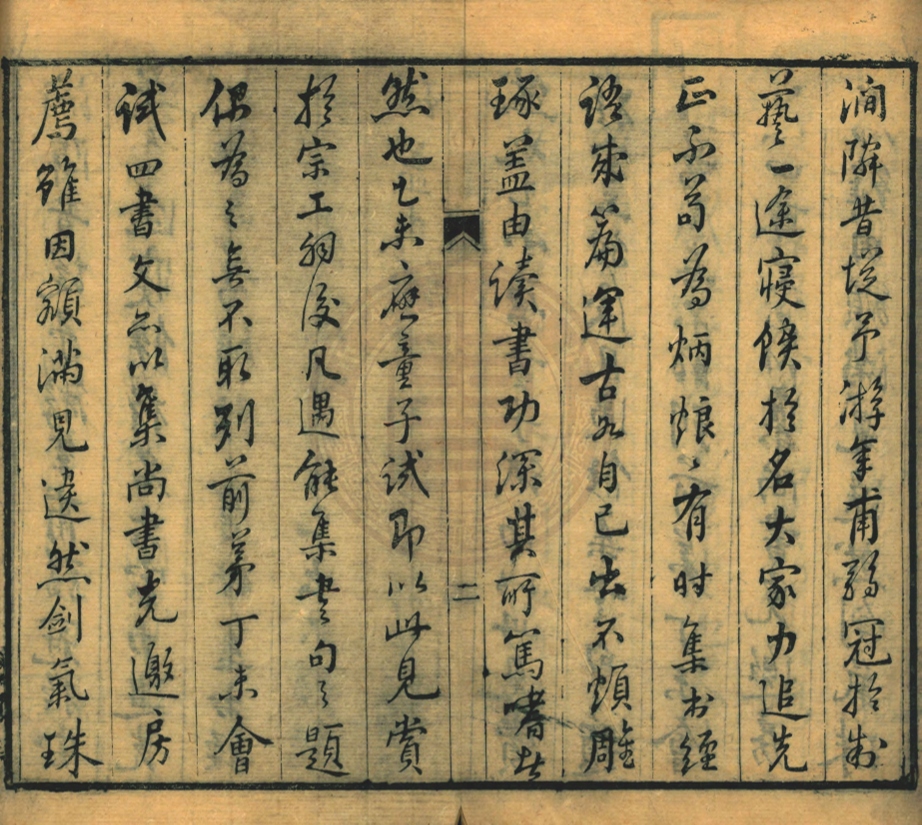 澗隣昔從予游年甫弱冠於制
藝一途寢饋於名大家力追先
正不苟為炳烺〻有時集書經
語成篇運古如自己出不煩雕
琢蓋由讀書功深其所篤嗜者
二
然也乙未應童子試即以此見賞
於宗工嗣後凡遇能集書句之題
偶為之無不取列前茅丁未會
試四書文亦以集尚書克邀房
薦雖因額滿見遺然劍氣珠